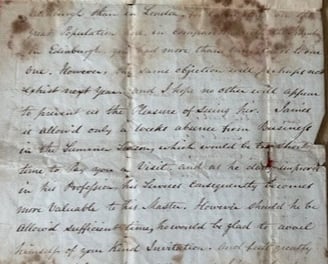 Edinburgh than in London,
great Population and in comparison
in Edinburgh, you had more than
one. However, the same objection will perhaps not
Exhist next year and I hope no other will appear
to prevent us the Pleasure of Seeing you. James
is allow'd only a weeks absence from Business
in the Summer Season, which would be too short
time to Pay you a Visit, and as he daily improves
in his Profession his Services Consequently becomes
more Valuable to his Master. However should he be
Allow'd sufficient time, he would be glad to avail
himself of your Kind Invitation. And feel greatly